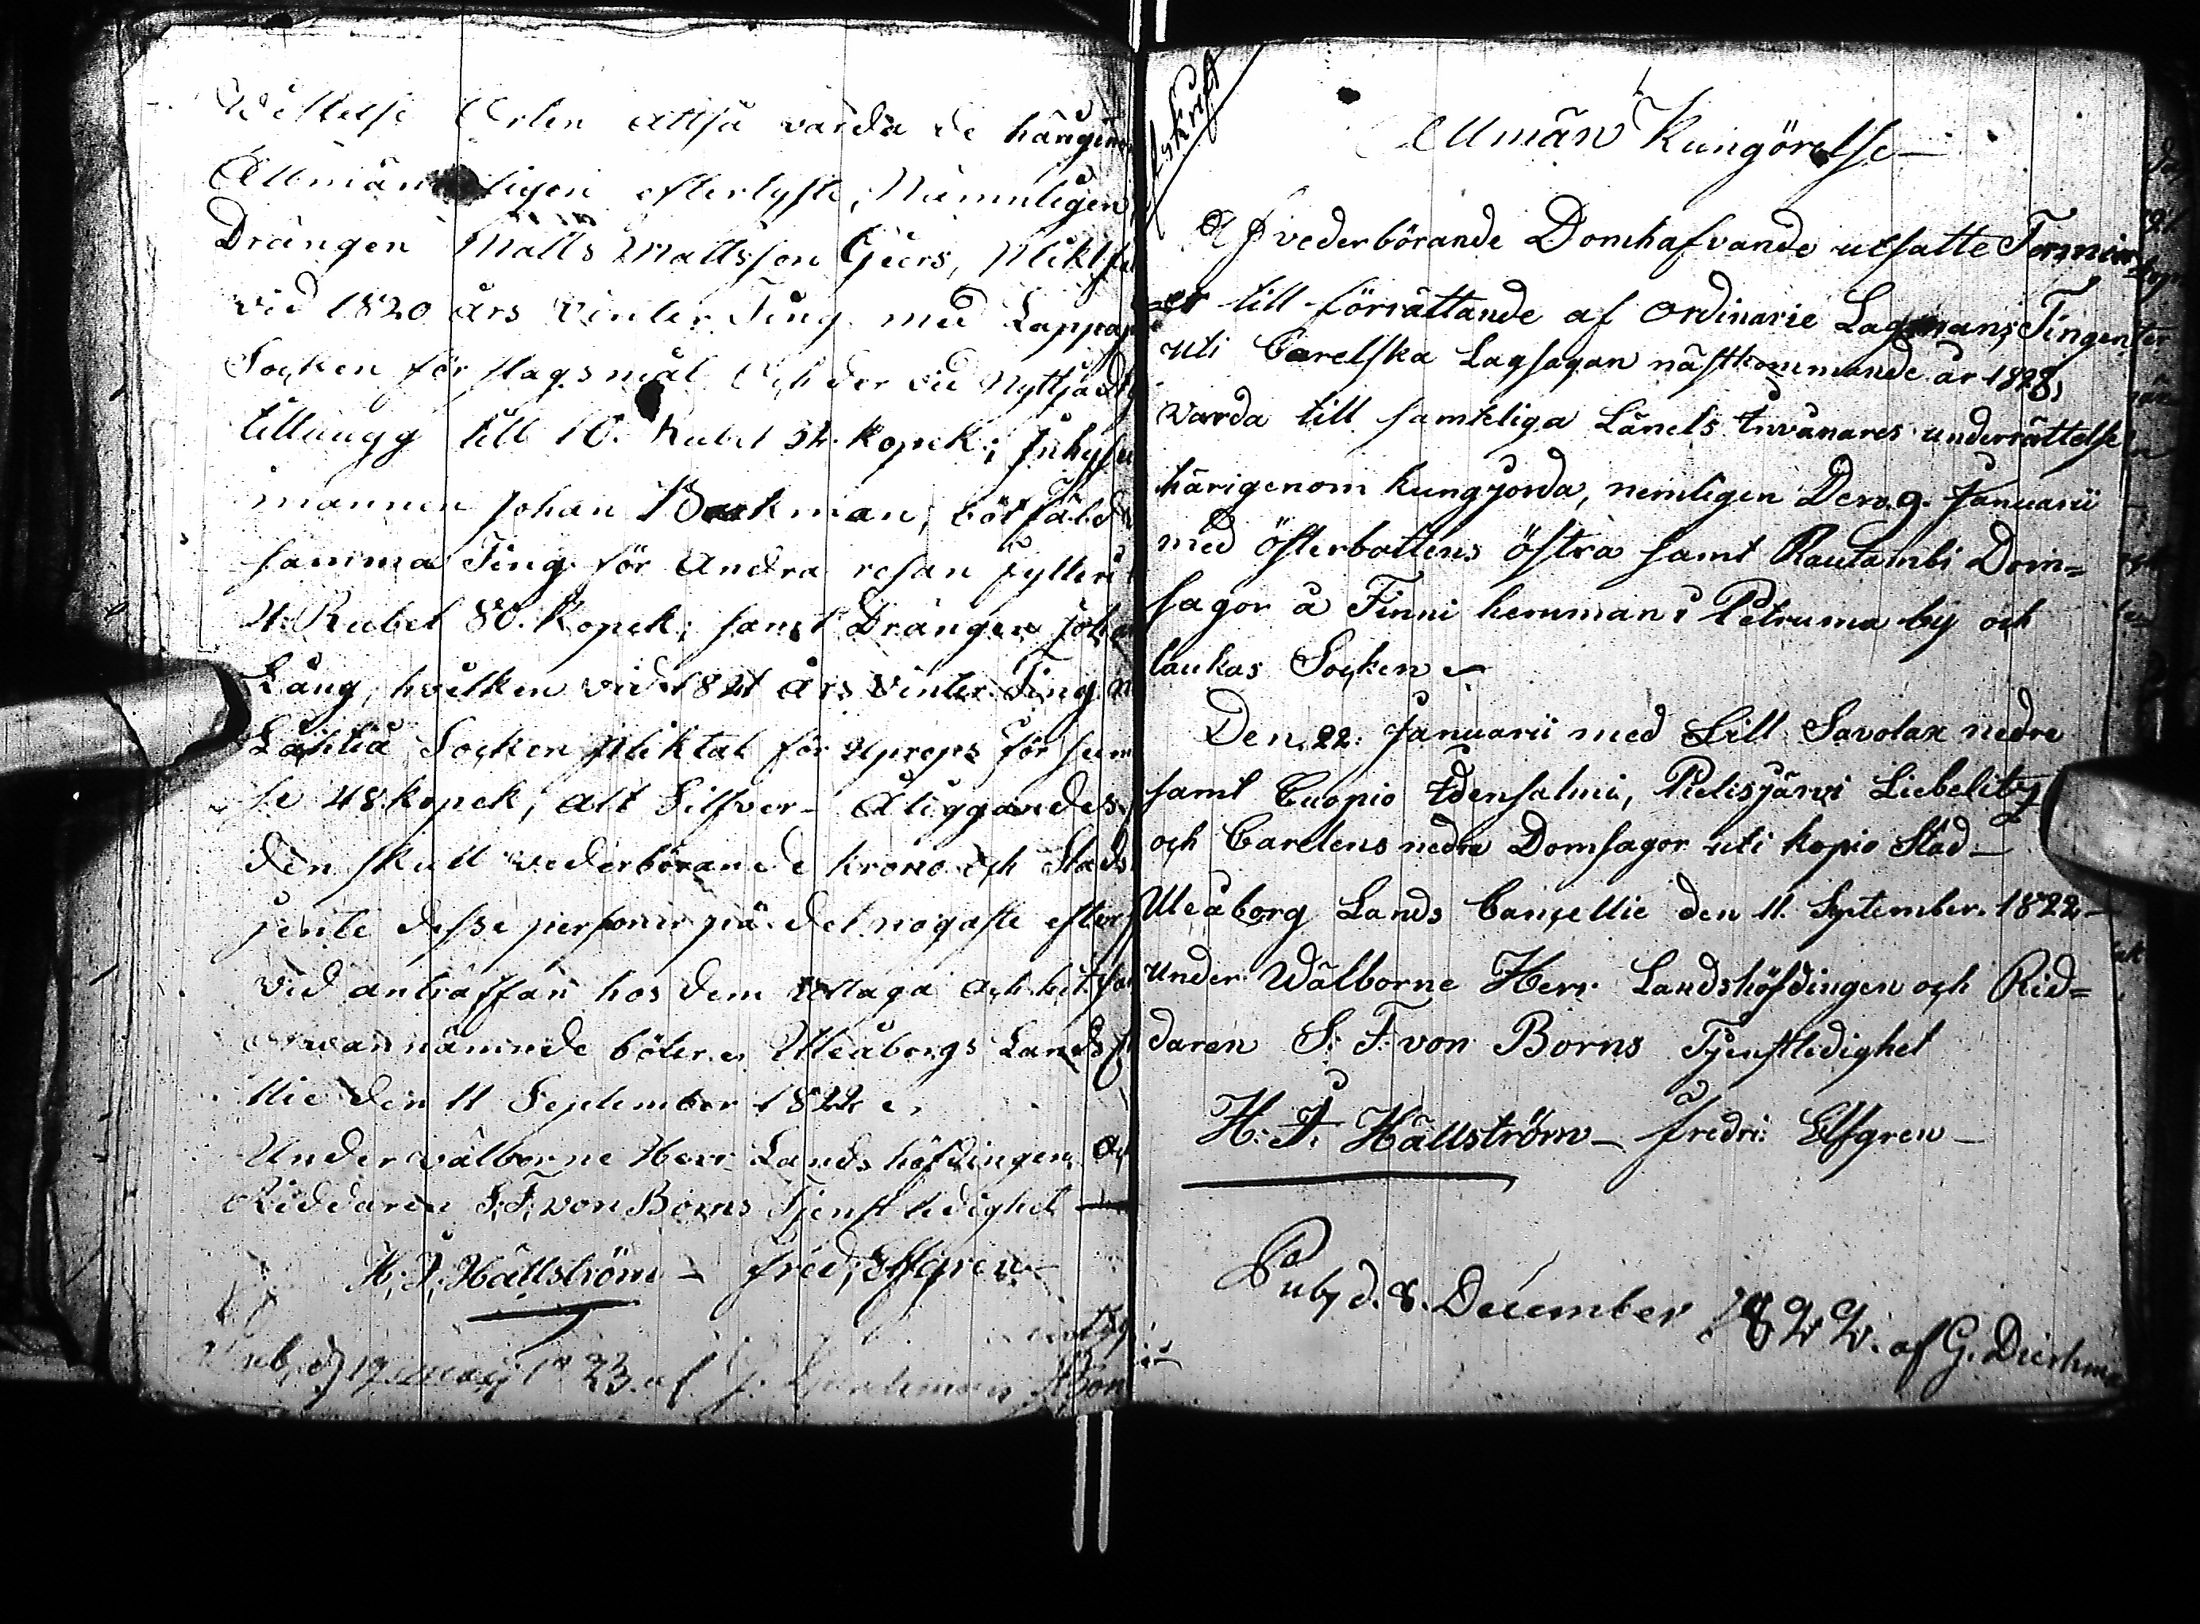 Vistelse Orten altså varda de härigenom
Allmänneligen efterlyste, Nemnligen
Drängen Matts Mattsson Geers, Pliktfäl
vid 1820 års Vinter Ting med Lappajä
Socken för slagsmål och der vid Nyttjadt
tillhugg till 10. Rubel 32. kopek; Inhyses
mannen Johan Backman, bötfäld
samma Ting för Andra resan fylleri
4. Rubel 80. Kopek; samt Drängen Johan
Lång, hvilken vid 1821 års Vinter Ting m
Laihia Socken pliktat för för sum
se 48 kopek, alt Silfver – Åliggandes
den skull vederbörande krono och Stads
jente desse personer på det nogaste efter
vid anträffan hos dem uttaga och hit
ofvannämnde böter. Uleåborgs Lands
llie den 11 September 1822.
Under välborne Herr Landshöfdingen och
Riddaren S: F: von Borns Tjenstledighet
H: J: Hällström – Fred: Elfgren
Pub. d 19 1823. af J.
Afskrift
Allmän Kungörelse
Af vederbörande Domhafvande utsatte Terminer
er till förrättande af ordinarie Lagmans Tingen
uti Carelska Lagsagan nästkommande år 1823,
varda till samteliga Länets Invånares underrättelse
härigenom kungjorda, nemligen Den 9. Januarii
med Österbottens östra samt Rautambi Dom=
sagor å Finni hemman i Petruma by och
laukas Socken
Den 22: Januarii med Lill Savolax nedre
samt Cuopio Idensalmi, Pielisjärvi Liebelitz
och Carelens nedre Domsagor uti kopio Stad –
Uleåborg Lands Cancellie den 11. September. 1822 –
Under Wälborne Herr Landshöfdingen och Rid=
daren S: F: von Borns Tjenstledighet
H: J: Hällström – Fredr: Elfgren –
Pub. d. 8. December 1822. af G.